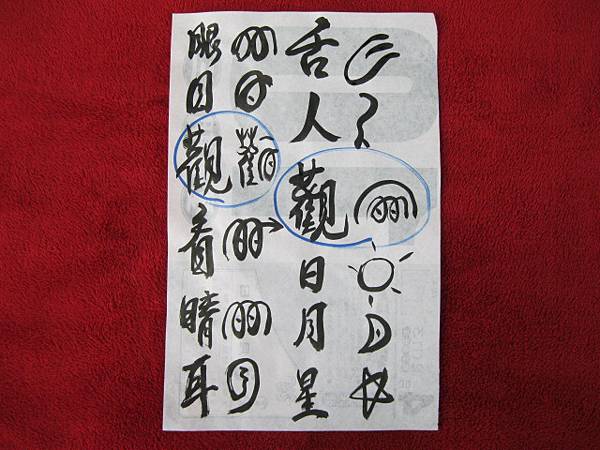 舌人觀日月星
眼目觀看睛耳